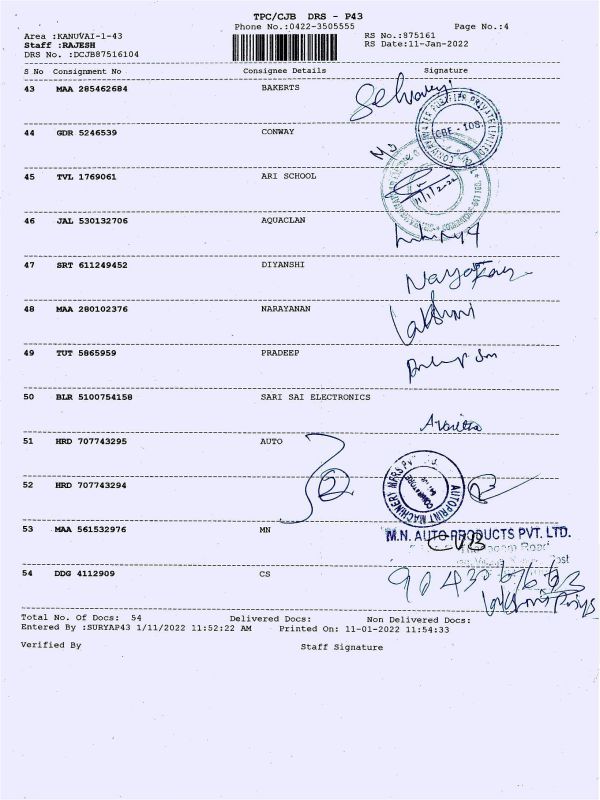 TPC/CJB DRS - P43
Phone No.:0422-3505555
Page No.:4
Area :KANUVAI-1-43
RS No.:875161
Staff :RAJESH
RS Date:11-Jan-2022
DRS No. :DCJB87516104
S No Consignment No Consignee Details Signature
43 MAA 285462684 BAKERTS
Selvaraj
44 GDR 5246539 CONWAY
CBE - 108
45 TVL 1769061 ARI SCHOOL
11/1/2022
46 JAL 530132706 AQUACLAN
47 SRT 611249452 DIYANSHI
48 MAA 280102376 NARAYANAN
Lakshmi
49 TUT 5865959 PRADEEP
50 BLR 5100754158 SARI SAI ELECTRONICS
51 HRD 707743295 AUTO
2
52 HRD 707743294
AUTOPRINT MACHINERY MFRS.
53 MAA 561532976 MN
M.N. AUTO PRODUCTS PVT. LTD.
Road
Post
54 DDG 4112909 CS
Total No. Of Docs: 54 Delivered Docs: Non Delivered Docs:
Entered By :SURYAP43 1/11/2022 11:52:22 AM Printed On: 11-01-2022 11:54:33
Verified By Staff Signature